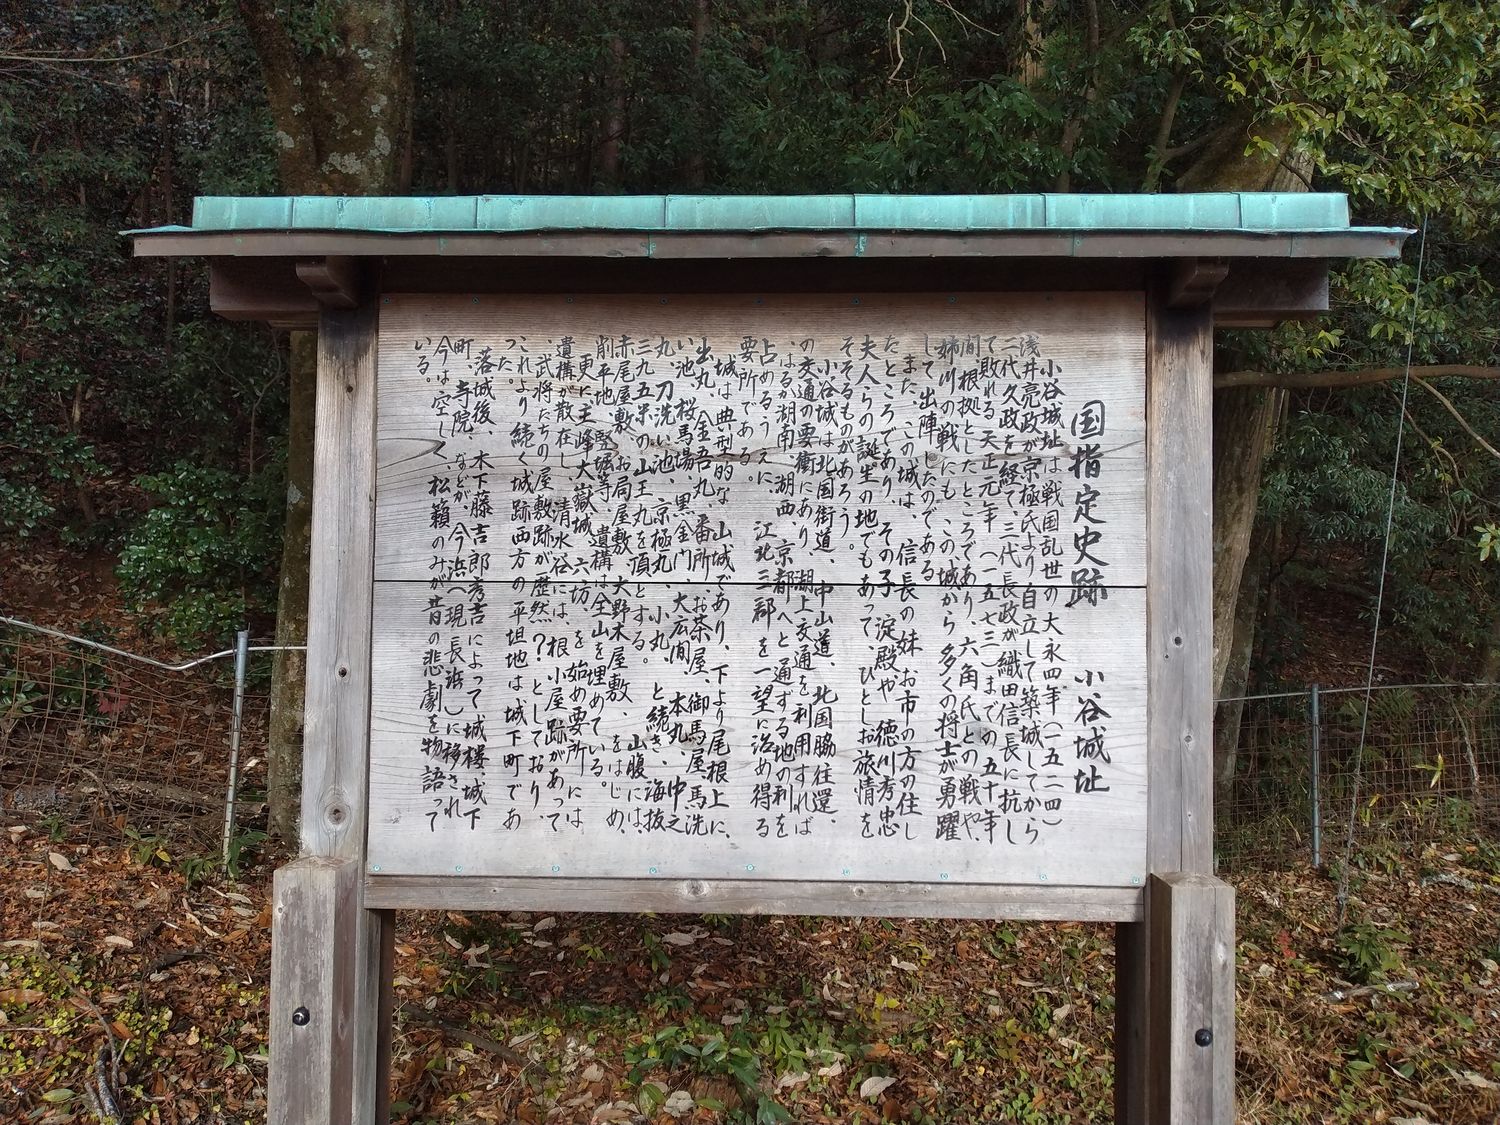 国指定史跡　小谷城址
小谷城址は戦国乱世の大永四年（一五二四）
浅井亮政が京極氏より自立して築城してから
二代久政を経て、三代長政が織田信長に抗し
て敗れる天正元年（一五七三）までの五十年
間、根拠としたところであり、六角氏との戦や、
姉川の戦にも、この城から多くの将士が勇躍
して出陣したのである
また、この城は、信長の妹お市の方の住し
たところであり、その子淀殿や徳川秀忠
夫人らの誕生の地でもあって、ひとしお旅情を
そそるものがあろう。
小谷城は北国街道、中山道、北国脇往還、
の交通の要衝にあり、湖上交通を利用すれば
はるか湖南、湖西、京都へと通ずる地の利を
占めるうえに、江北三郡を一望に治め得る
要所である。
城は典型的な山城であり、下より尾根上に、
出丸、金吾丸、番所、お茶屋、御馬屋、馬洗
い池、桜馬場、黒金門、大広間、本丸、中之
丸、刀洗い池、京極丸、小丸、と続き、海抜
三九五米の山王丸を頂とする。山腹には、
赤尾屋敷、お局屋敷、大野木屋敷、をはじめ、
削平地、竪堀等、遺構は全山を埋めている。
更に主峰大嶽城、六坊、を始め要所には
遺構が散在し、清水谷には、根小屋跡があって
武将たちの屋敷跡が歴然？としており、
これより続く城跡西方の平坦地は城下町であ
った。
落城後、木下藤吉郎秀吉によって城楼、城下
町、寺院、などが今浜へ（現長浜）に移され
今は空しく、松籟のみが昔の悲劇を物語って
いる。